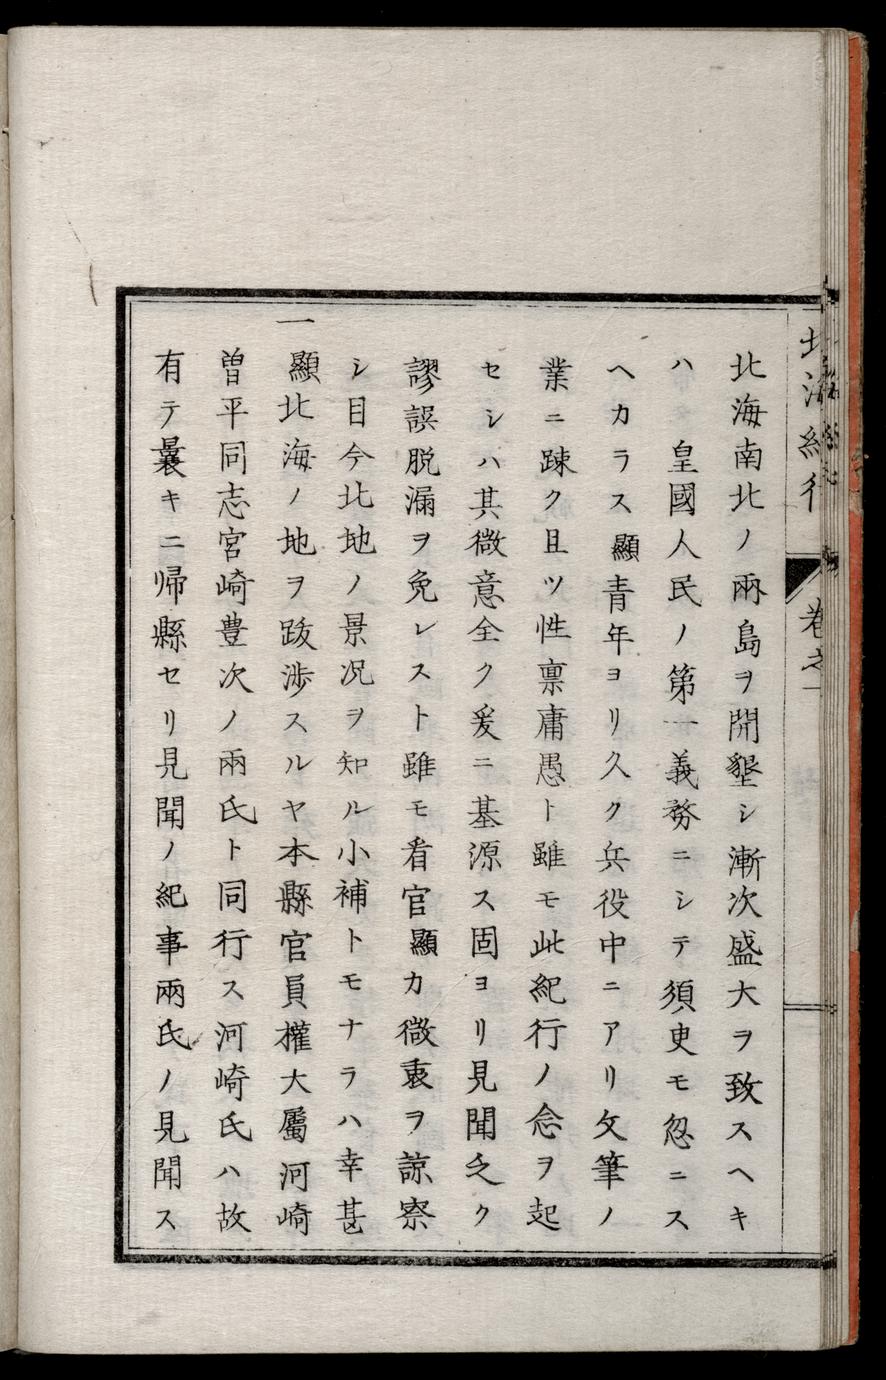 北海紀行 巻之一
北海南北ノ兩島ヲ開墾シ漸次盛大ヲ致スヘキ
ハ 皇國人民ノ第一義務ニシテ須臾モ忽ニス
ヘカラス顯青年ヨリ久ク兵役中ニアリ文筆ノ
業ニ踈ク且ツ性禀庸愚ト雖モ此紀行ノ念ヲ起
セシハ其微意全ク爰ニ基源ス固ヨリ見聞乏ク
謬誤脱漏ヲ免レスト雖モ看官顯カ微衷ヲ諒察
シ目今北地ノ景况ヲ知ル小補トモナラハ幸甚
一顯北海ノ地ヲ跋渉スルヤ本縣官員權大屬河崎
曽平同志宮崎豊次ノ兩氏ト同行ス河崎氏ハ故
有テ曩キニ帰縣セリ見聞ノ紀事兩氏ノ見聞ス